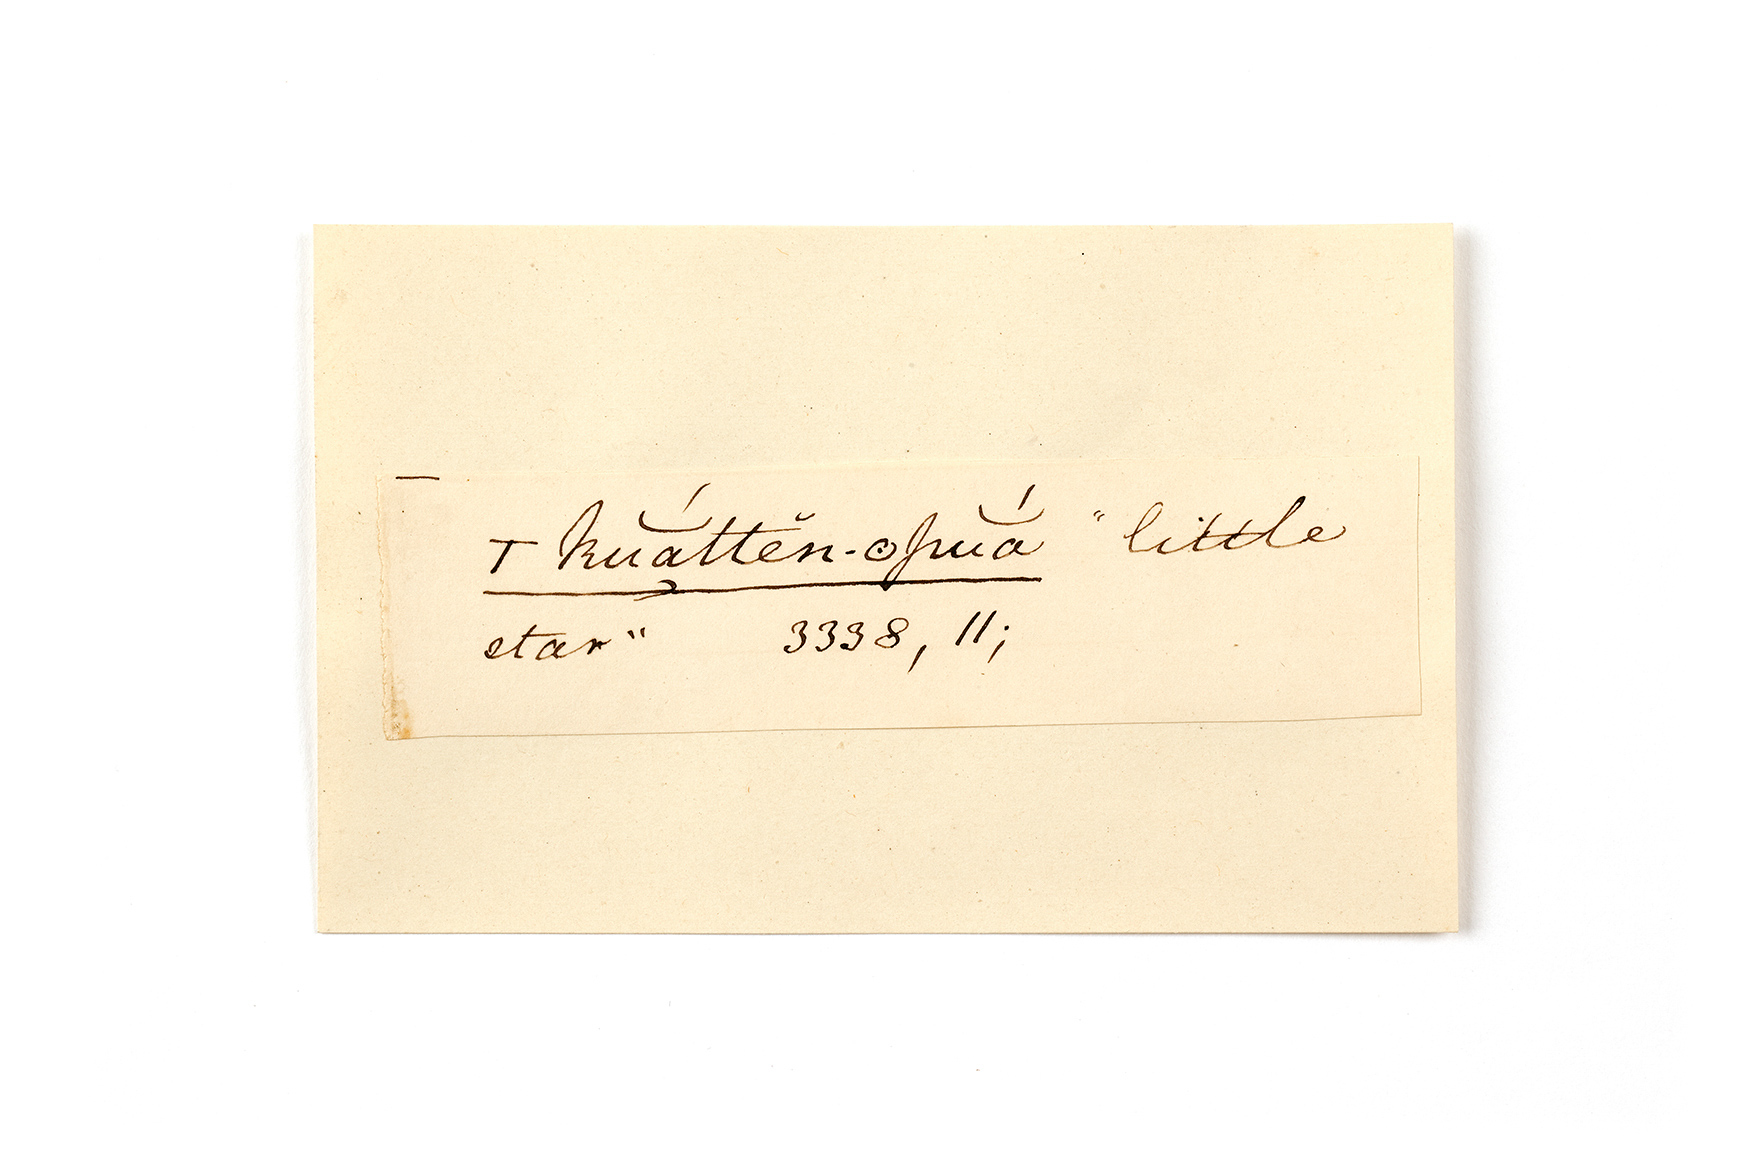 T kuáttĕn-opuá "little
star" 3338, 11;